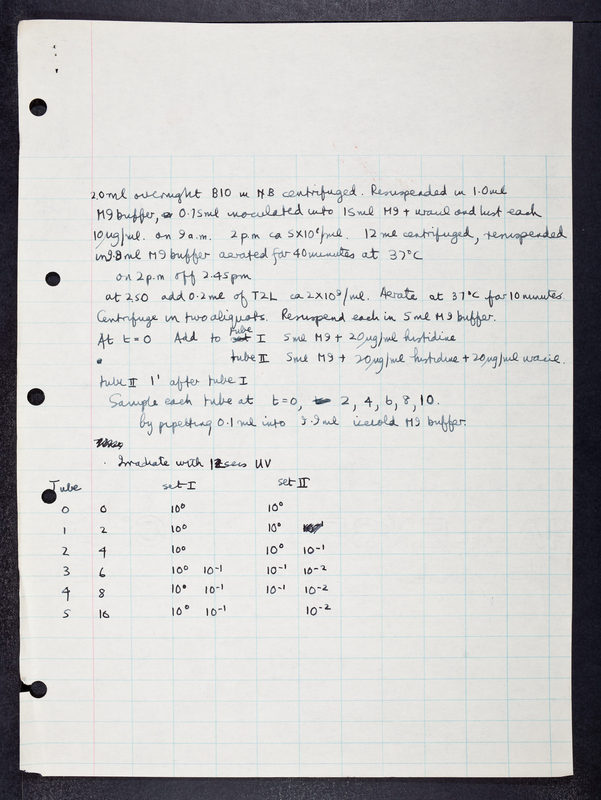 20ml overnight B10 in NB centrifuged. Resuspended in 1.0ml
M9 buffer, 0.75ml inoculated into 15ml M9 + uracil and hist each
10µg/ml. on 9a.m. 2p.m ca 5X10⁸/ml. 12ml centrifuged, resuspended
in 9.8ml M9 buffer aerated for 40 minutes at 37°C
on 2p.m off 2.45pm
at 250 add 0.2ml of T2L ca 2X10⁹/ml. Aerate at 37°C for 10 minutes.
Centrifuge in two aliquots. Resuspend each in 5ml M9 buffer.
At t=0 Add to tube I 5ml M9 + 20µg/ml histidine
tube II 5ml M9 + 20µg/ml histidine + 20µg/ml uracil.
tube II 1' after tube I
Sample each tube at t=0, 2, 4, 6, 8, 10.
by pipetting 0.1ml into 9.9ml icecold M9 buffer.
Irradiate with secs UV
Tube set I set II
0 0 10⁰ 10⁰
1 2 10⁰ 10⁰
2 4 10⁰ 10⁰ 10⁻¹
3 6 10⁰ 10⁻¹ 10⁻¹ 10⁻²
4 8 10⁰ 10⁻¹ 10⁻¹ 10⁻²
5 10 10⁰ 10⁻¹ 10⁻²